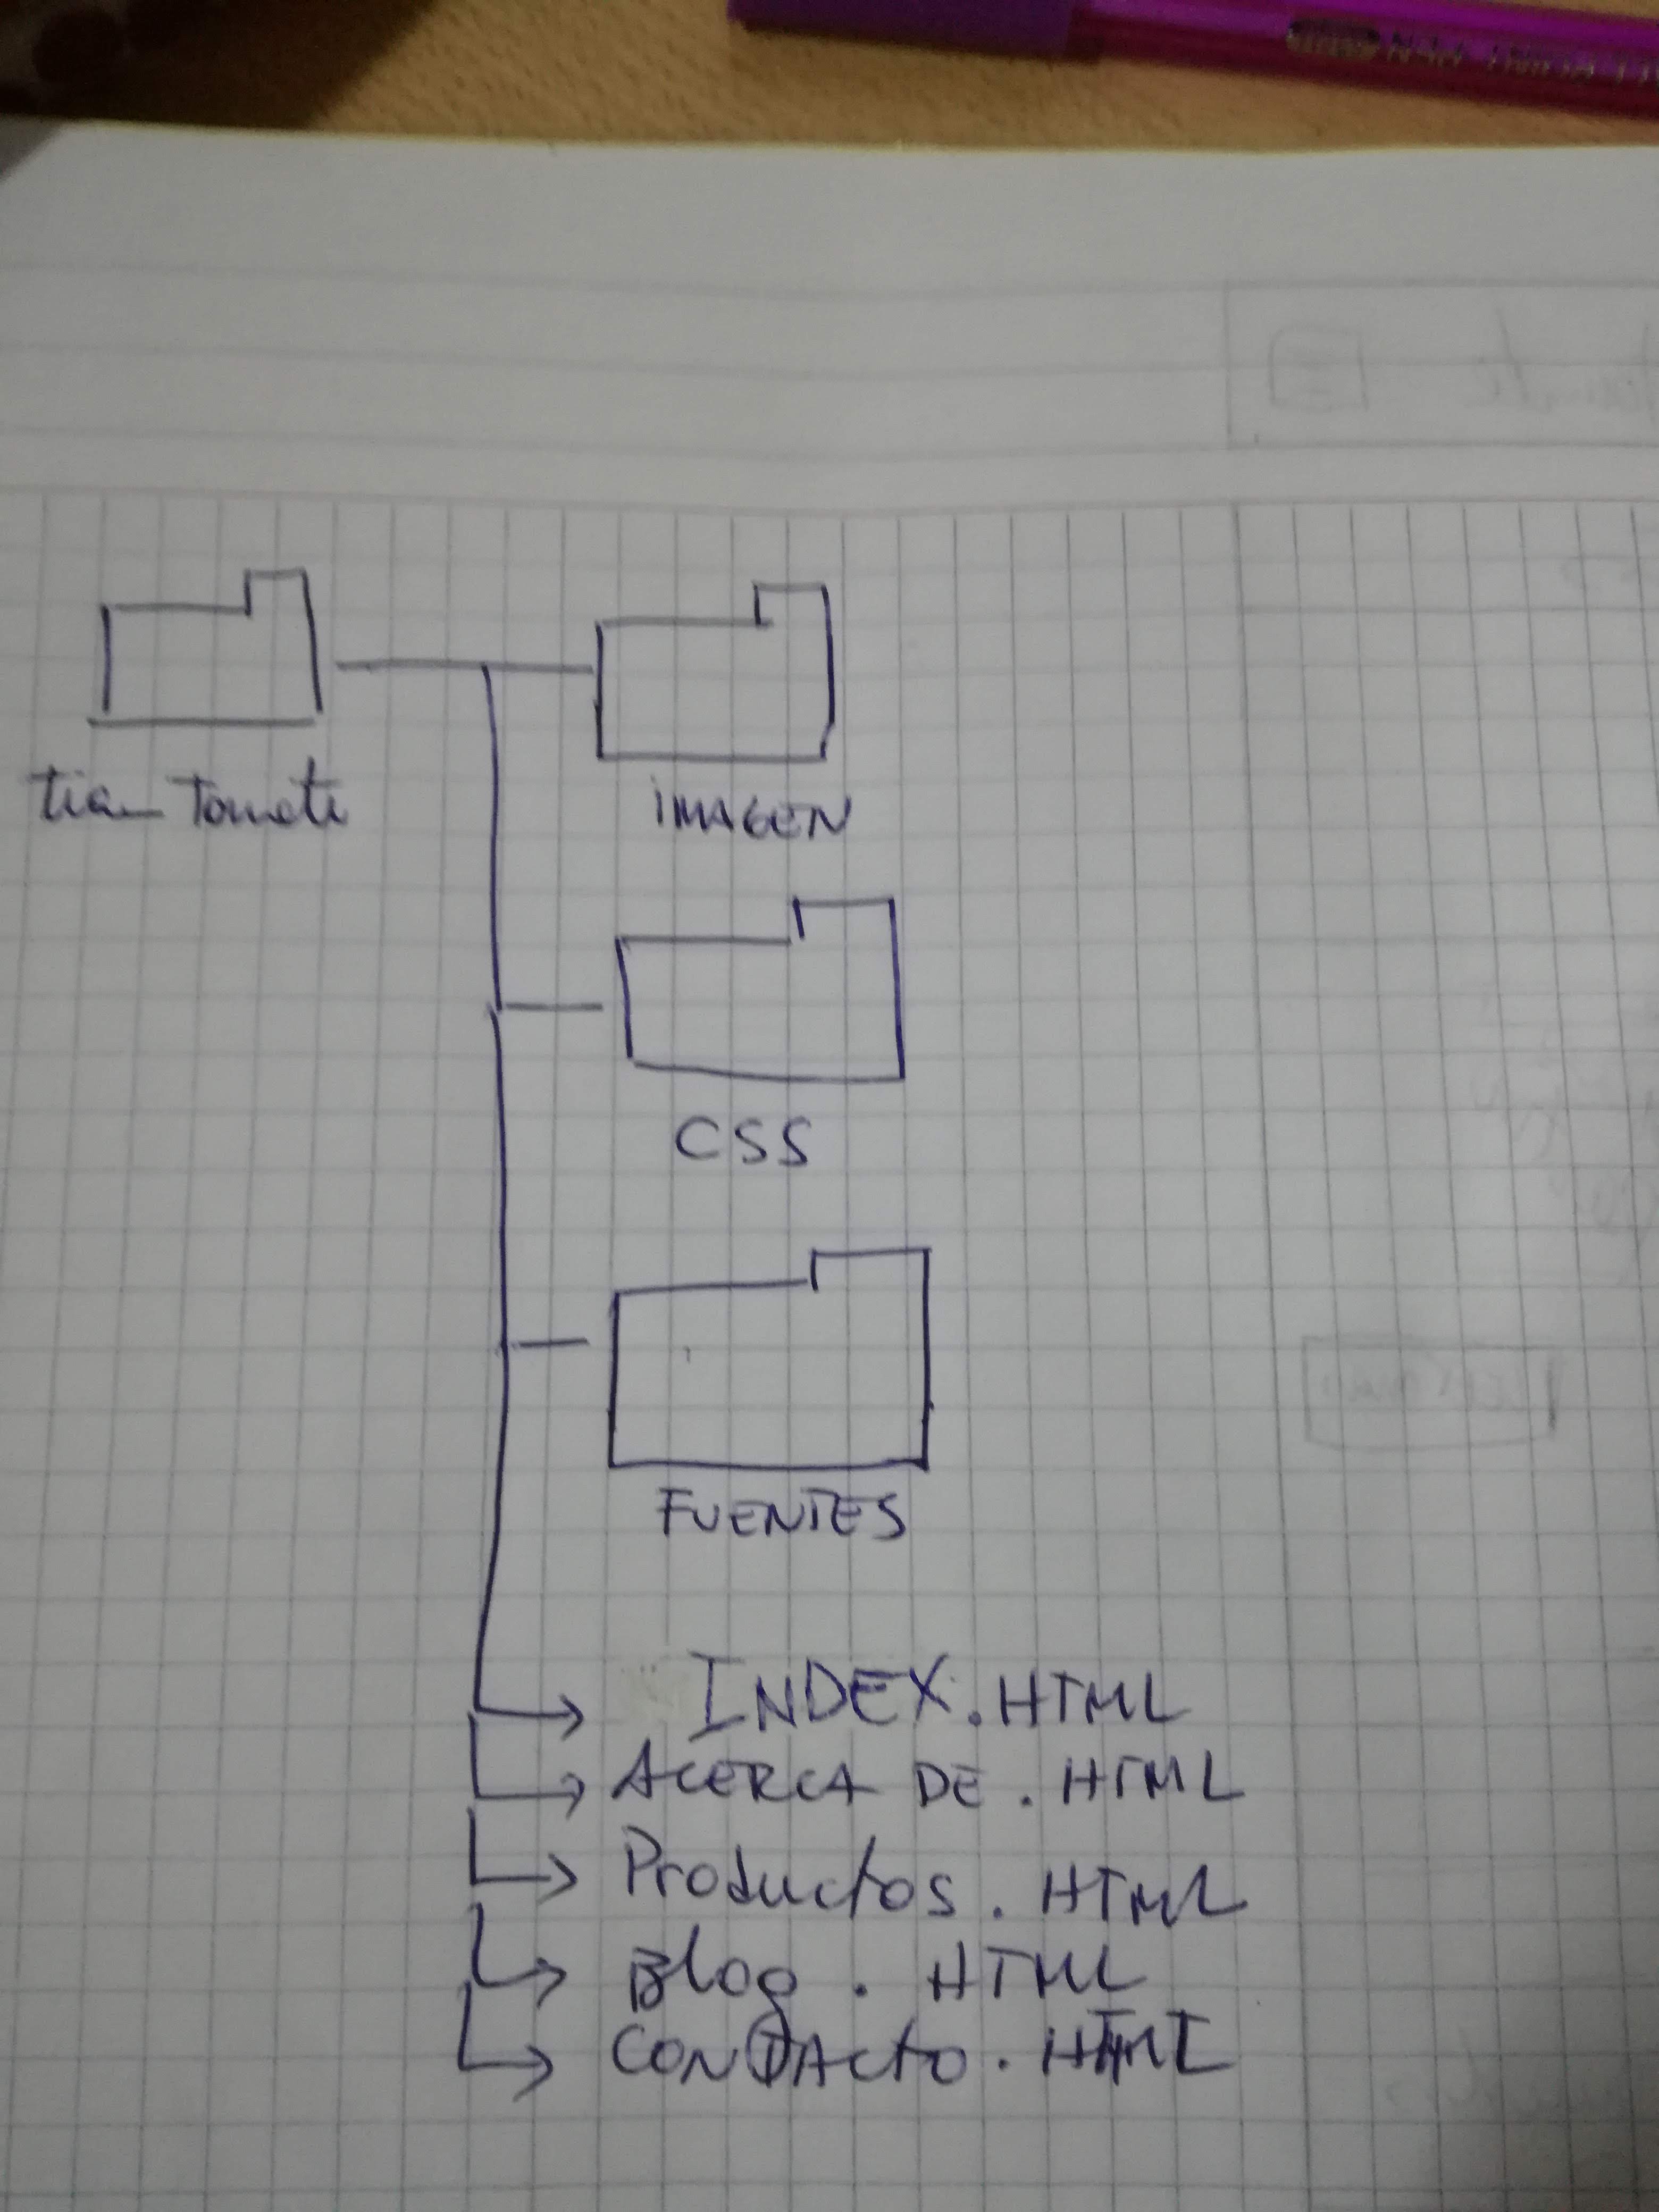 tia_Tomate
IMAGEN
CSS
FUENTES
INDEX.HTML
ACERCA DE.HTML
Productos.HTML
Blog.HTML
CONTActo.HTML